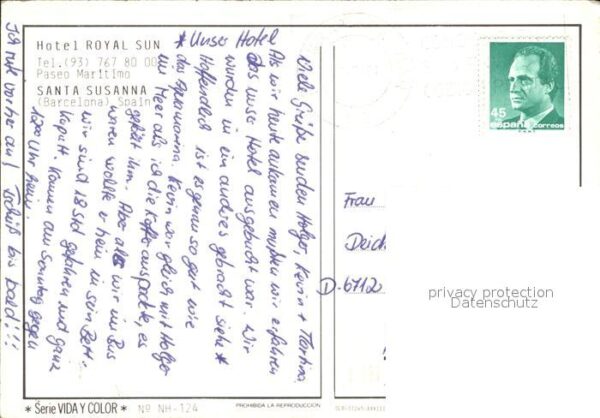 Hotel ROYAL SUN
Tel.(93) 767 80 00
Paseo Marítimo
SANTA SUSANNA
(Barcelona) Spain
* Unser Hotel
Viele Grüße senden Holger, Kevin + Martina
Als wir heute ankamen mußten wir erfahren
das unser Hotel ausgebucht war. Wir
wurden in ein anderes gebracht siehe *
Hoffendlich ist es genau so gut wie
das Aquamarina. Kevin war gleich mit Holger
im Meer als ich die Koffer auspackte, es
gefällt ihm. Aber als wir im Bus
waren wollte er heim in sein Bett.
Wir sind 18 Std gefahren und ganz
kaputt. Kommen am Sonntag gegen
1200 Uhr heim.
Ich rufe vorher an! Tschüß bis bald!!!
45
españa correos
Frau
Deich
D-6712
privacy protection
Datenschutz
* Serie VIDA Y COLOR * Nº NH-124
PROHIBIDA LA REPRODUCCION